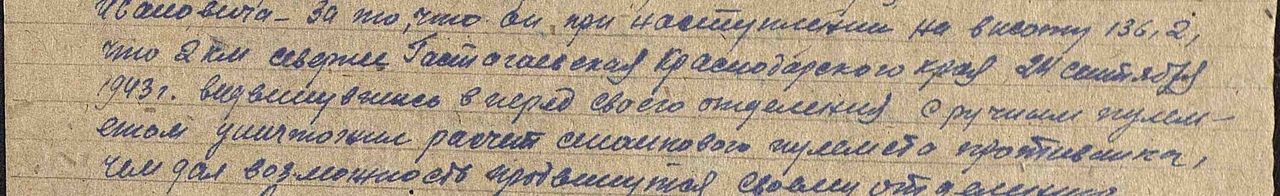 Ивановича – за то, что он при наступлении на высоту 136,2,
что 2 км севернее Гастагаевская Краснодарского края 24 сентября
1943 г. выдвинувшись вперед своего отделения с ручным пулем-
етом уничтожил расчет станкового пулемета противника,
чем дал возможность продвинутся своему отделению